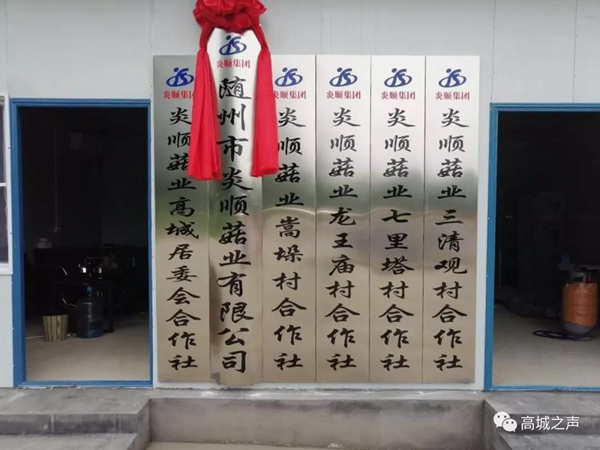 炎顺集团
炎顺菇业高城居委会合作社
炎顺集团
随州市炎顺菇业有限公司
炎顺集团
炎顺菇业嵩垛村合作社
炎顺集团
炎顺菇业龙王庙村合作社
炎顺集团
炎顺菇业七里塔村合作社
炎顺集团
炎顺菇业三清观村合作社
高城之声